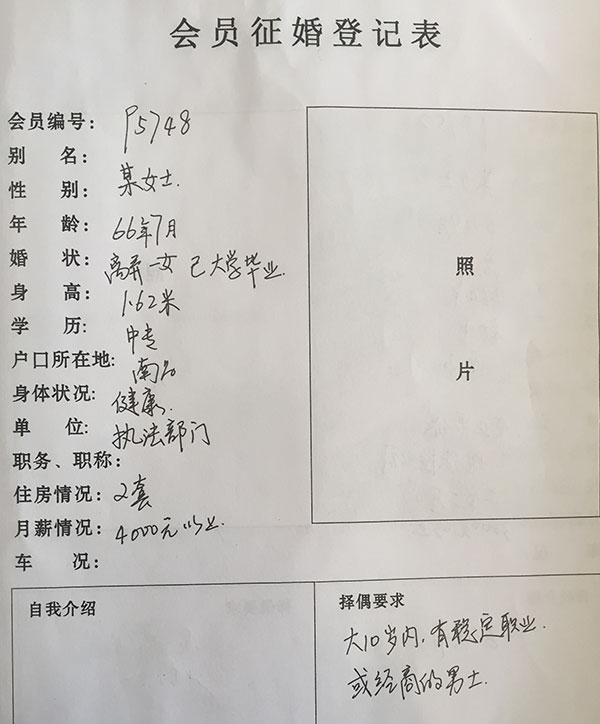 会员征婚登记表
会员编号: P5748
别 名:
性 别: 某女士.
年 龄: 66年7月
婚 状: 离异一女 已大学毕业.
身 高: 1.62米
学 历: 中专
户口所在地: 南昌
身体状况: 健康.
单 位: 执法部门
职务、职称:
住房情况: 2套
月薪情况: 4000元以上.
车 况:
照
片
自我介绍
择偶要求
大10岁内, 有稳定职业.
或经商的男士.